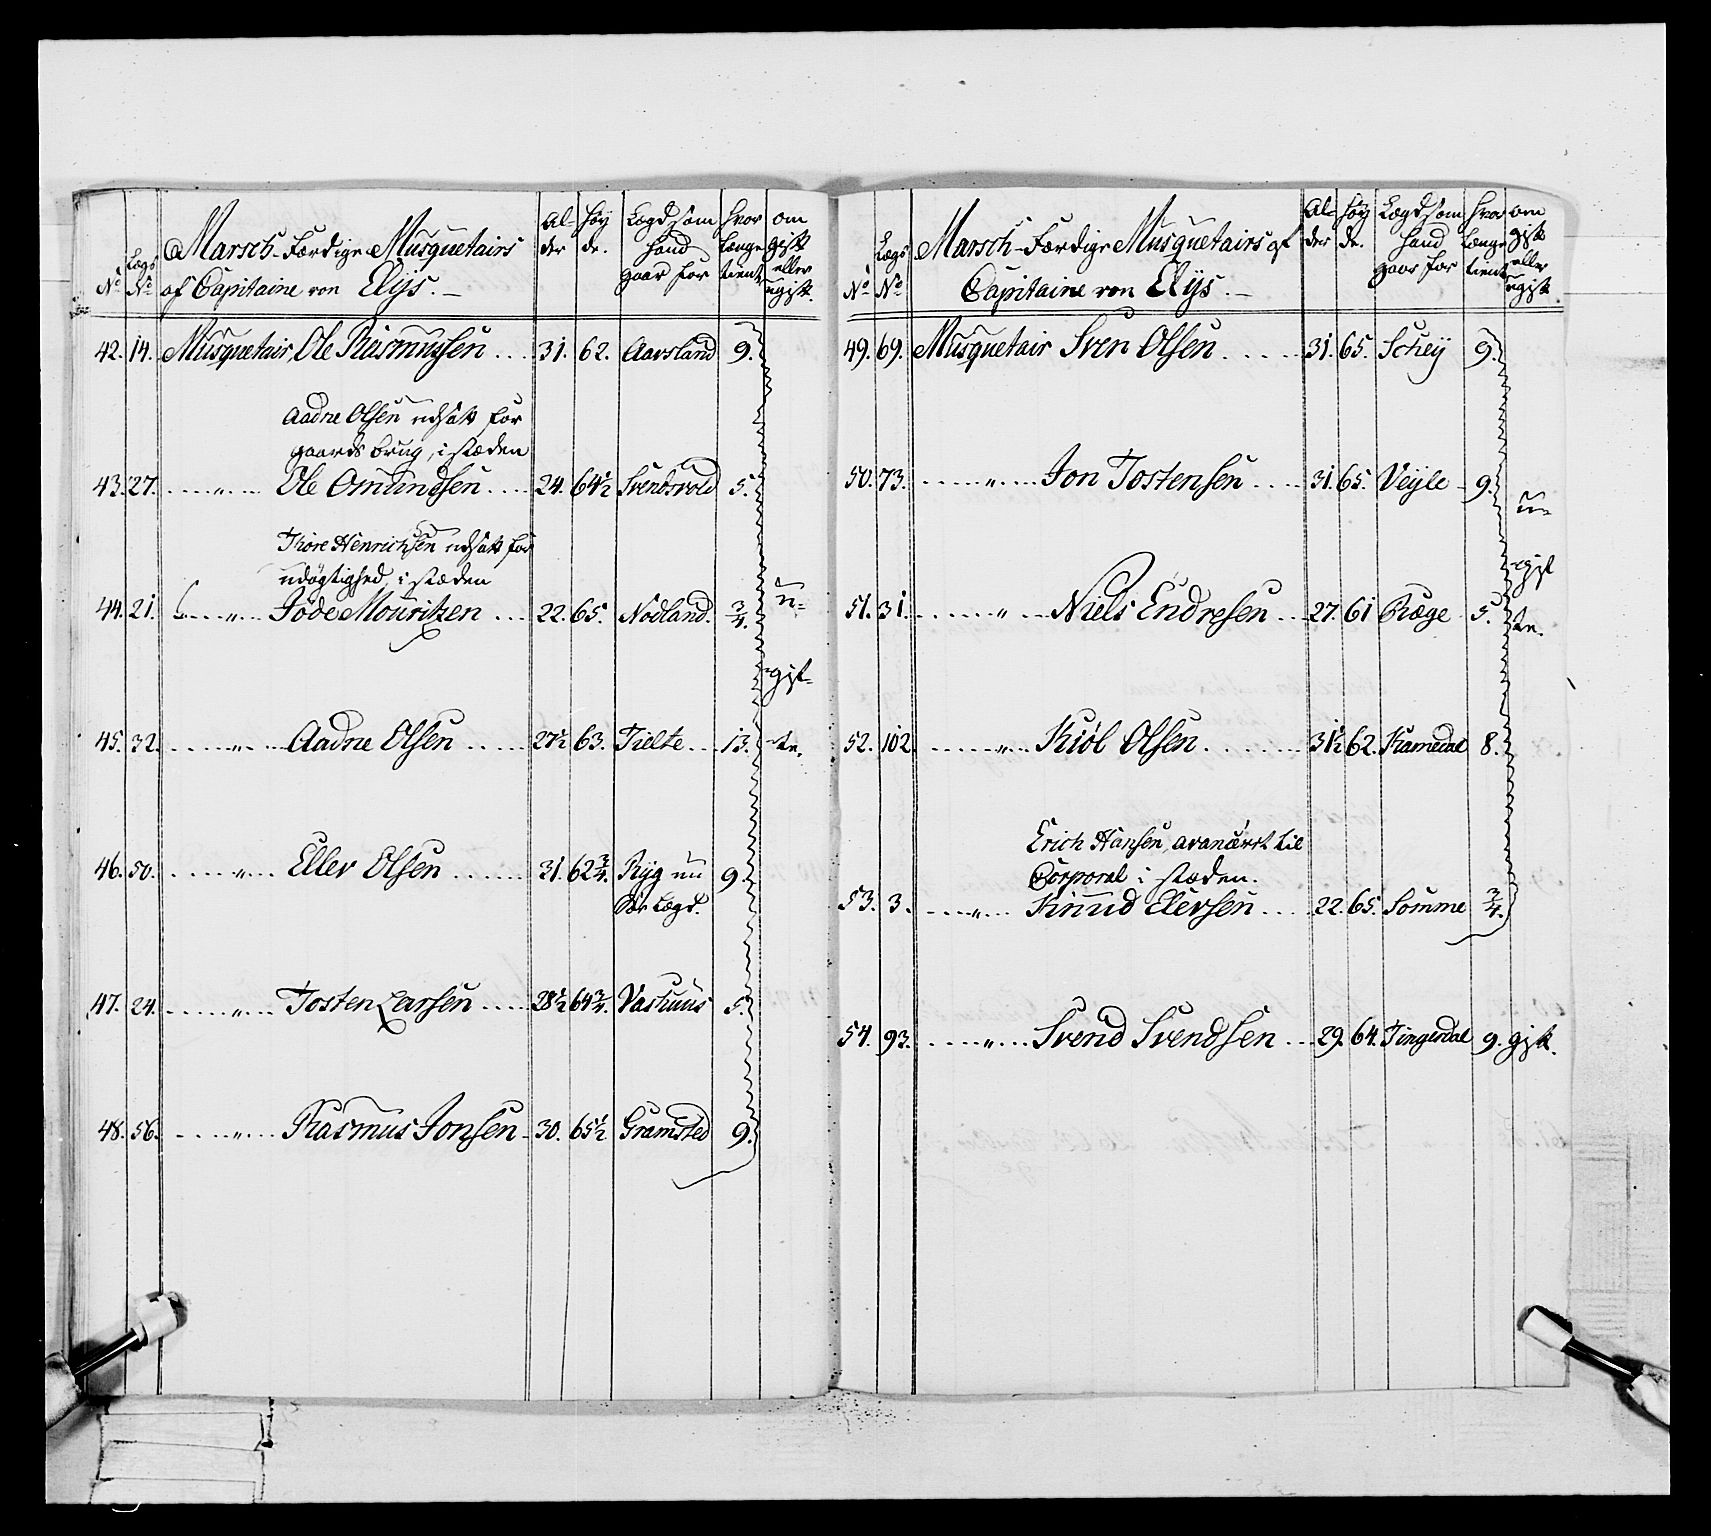 No Lægs No Marsch-Færdige Musquetairs af Capitaine von Elÿs. Alder Høyde. Lægd som hand gaar for Hvor længe tient om gift eller ugift.
42. 14. Musquetair, Ole Rasmussen 31. 62. Aarsland 9.
Aadne Olsen udsatt for
gaards brug, i stæden
43. 27. " Ole Omundsen 24. 64½ Svendsvold 5.
Thore Henrichsen udsatt for
udøgtighed, i stæden
44. 21. " Jøde Mouritzen 22. 65. Nodland. ¾.
45. 32. " Aadne Olsen 27½ 63. Tielte 13.
46. 50. " Eller Olsen 31. 62¾. Ryg un 9.
Lægd.
47. 24. " Tosten Larsen 28½ 64¾. Vashuus 5.
48. 56. " Rasmus Jonsen 30. 65½ Gramsted 9.
u=
gif=
te.
No Lægs No Marsch-Færdige Musquetairs af Capitaine von Elÿs. Alder Høyde. Lægd som hand gaar for Hvor længe tient om gift eller ugift
49. 69. Musquetair Sven Olsen 31. 65. Scheÿ 9.
50. 73. " Jon Tostensen 31. 65. Veÿle 9.
51. 31. " Niels Endresen 27. 61 Ræge 5.
52. 102. " Kiøl Olsen 31½ 62. Ramedal 8.
Erich Hansen, avancert til
Corporal i stæden.
53. 3. " Knud Elersen 22. 65. Somme ¾.
54. 93. " Svend Svendsen 29. 64. Tingerdal 9. gift.
u=
gif
te.